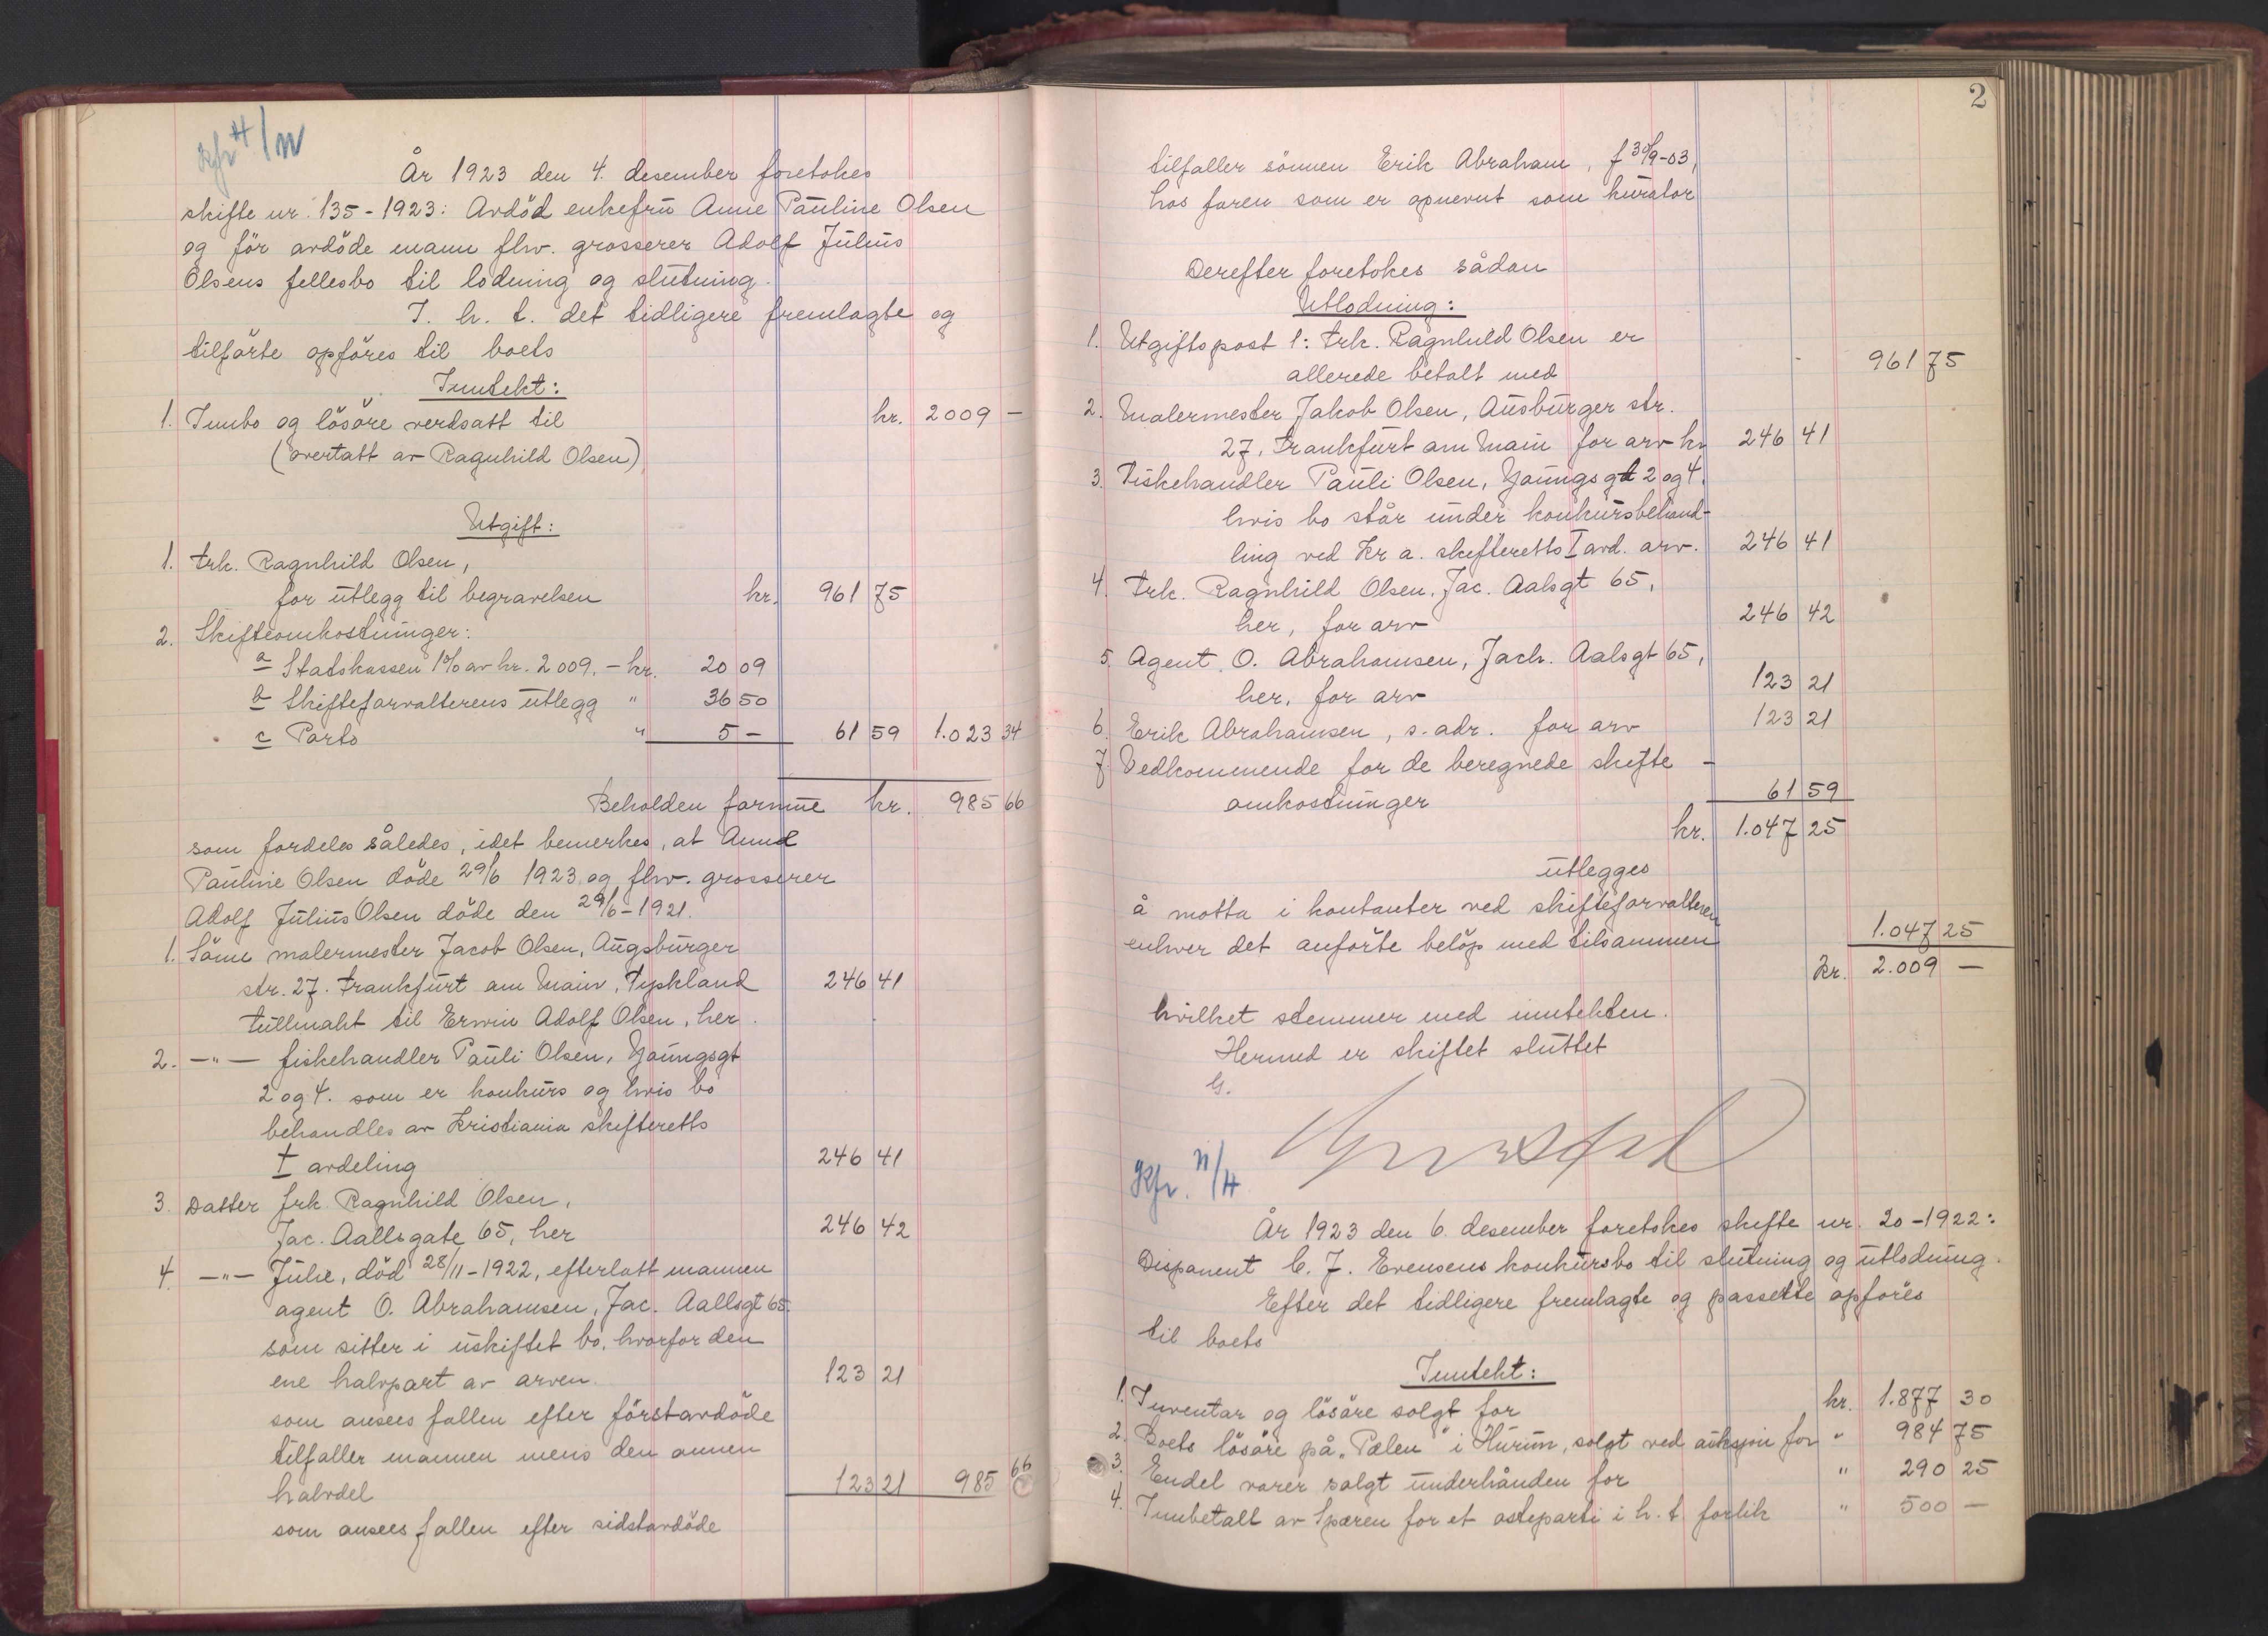 Kfr H/N
År 1923 den 4. desember foretokes
skifte nr. 135-1923: Avdöd enkefru Anne Pauline Olsen
og för avdöde mann fhv. grosserer Adolf Julius
Olsens fellesbo til lodning og slutning.
I. h. t. det tidligere fremlagte og
tilförte opföres til boets
Inntekt:
1. Innbo og lösöre verdsatt til kr. 2009 —
(overtatt av Ragnhild Olsen)
Utgift:
1. Frk. Ragnhild Olsen,
for utlegg til begravelsen kr. 961 75
2. Skifteomkostninger:
a Statskassen 1% av kr. 2009.- kr. 20 09
b Skifteforvalterens utlegg " 36 50
c Porto " 5 - 61 59 1.023 34
Beholden formue kr. 985 66
som fordeles således, idet bemerkes, at Anne
Pauline Olsen döde 29/6 1923 og fhv. grosserer
Adolf Julius Olsen döde den 29/6-1921.
1. Sönn malermester Jacob Olsen, Augsburger
str. 27. Frankfurt am Main, Tyskland 246 41
Fullmakt til Erwin Adolf Olsen, her.
2. —"— fiskehandler Pauli Olsen, Youngsgt
2 og 4. som er konkurs og hvis bo
behandles av Kristiania skifteretts
I avdeling 246 41
3. Datter frk. Ragnhild Olsen,
Jac. Aallsgate 65, her 246 42
4. —"— Julie, död 28/11-1922, efterlatt mannen
agent O. Abrahamsen, Jac. Aallsgt 65.
som sitter i uskiftet bo, hvorfor den
ene halvpart av arven. 123 21
som ansees fallen efter förstavdöde
tilfaller mannen mens den annen
halvdel 123 21 985 66
som ansees fallen efter sidstavdöde
2
tilfaller sönnen Erik Abraham, f 30/9-03,
hos faren som er opnevnt som kurator
Derefter foretokes sådan
Utlodning:
1. Utgiftspost 1: Frk. Ragnhild Olsen er
allerede betalt med 961 75
2. Malermester Jakob Olsen, Ausburger str.
27, Frankfurt am Main for arv kr 246 41
3. Fiskehandler Pauli Olsen, Youngsgt 2 og 4.
hvis bo står under konkursbehand-
ling ved Kr a. skifteretts I avd. arv. 246 41
4. Frk. Ragnhild Olsen, Jac. Aalsgt 65,
her, for arv 246 42
5. Agent O. Abrahamsen, Jach. Aalsgt 65,
her, for arv 123 21
6. Erik Abrahamsen, s. adr. for arv 123 21
7. Vedkommende for de beregnede skifte -
omkostninger 61 59
kr. 1.047 25
utlegges
å motta i kontanter ved skifteforvalteren
enhver det anförte belöp med tilsammen 1.047 25
Kr. 2.009 —
hvilket stemmer med inntekten.
Hermed er skiftet sluttet
G.
Kfr. N/H
År 1923 den 6. desember foretokes skifte nr. 20-1922:
Disponent C. J. Evensens konkursbo til slutning og utlodning.
Efter det tidligere fremlagte og passerte opföres
til boets
Inntekt:
1. Inventar og lösöre solgt for kr. 1.877 30
2. Boets lösöre på „Pælen" i Hurum, solgt ved auksjon for " 984 75
3. Endel varer solgt underhånden for " 290 25
4. Innbetalt av Spæren for et osteparti i h. t. forlik " 500 —